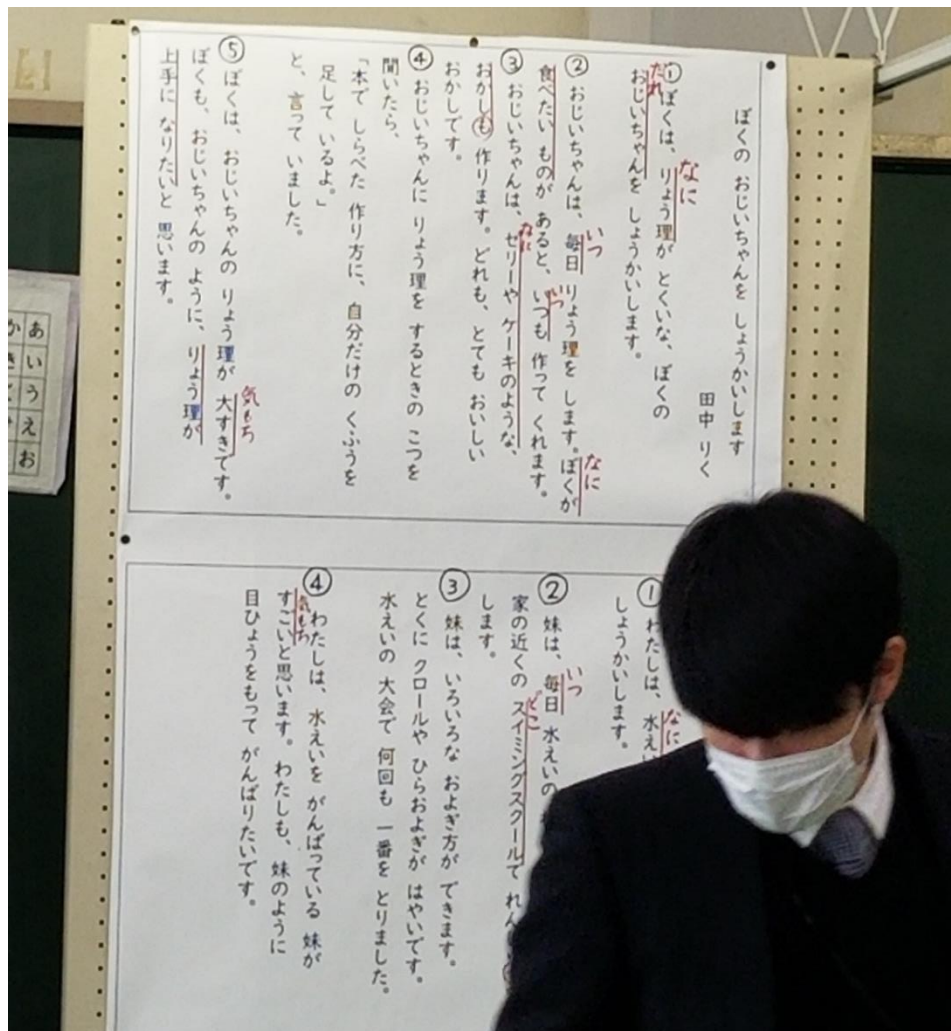 ぼくの おじいちゃんを しょうかいします
田中 りく
① ぼくは、りょう理が とくいな、ぼくの
おじいちゃんを しょうかいします。
② おじいちゃんは、毎日 りょう理を します。ぼくが
食べたい ものが あると、いつも 作って くれます。
③ おじいちゃんは、ゼリーや ケーキのような、
おかしも 作ります。どれも、とても おいしい
おかしです。
④ おじいちゃんに りょう理を するときの こつを
聞いたら、
「本で しらべた 作り方に、自分だけの くふうを
足して いるよ。」
と、言って いました。
⑤ ぼくは、おじいちゃんの りょう理が 大すきです。
ぼくも、おじいちゃんの ように、りょう理が
上手に なりたいと 思います。
だれ
なに
いつ
なに
いつ
なに
気もち
① わたしは、水えい
しょうかいします。
② 妹は、毎日 水えいの
家の近くの スイミングスクールで れん
します。
③ 妹は、いろいろな およぎ方が できます。
とくに クロールや ひらおよぎが はやいです。
水えいの 大会で 何回も 一番を とりました。
④ わたしは、水えいを がんばっている 妹が
すごいと思います。わたしも、妹のように
目ひょうをもって がんばりたいです。
なに
いつ
どこ
気もち
あいうえお